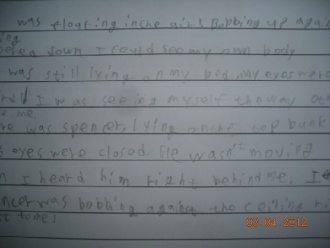 was floating in the air! Bobbing up again
ing
down I could see my own body
was still lying on my bed. My eyes were
I was seeing myself the way oth
me.
re was spencer lying on the top bunk
s eyes were closed. He wasn't moving
n I heard him right behind me. I
encer was bobbing against the ceiling
08 04 2012